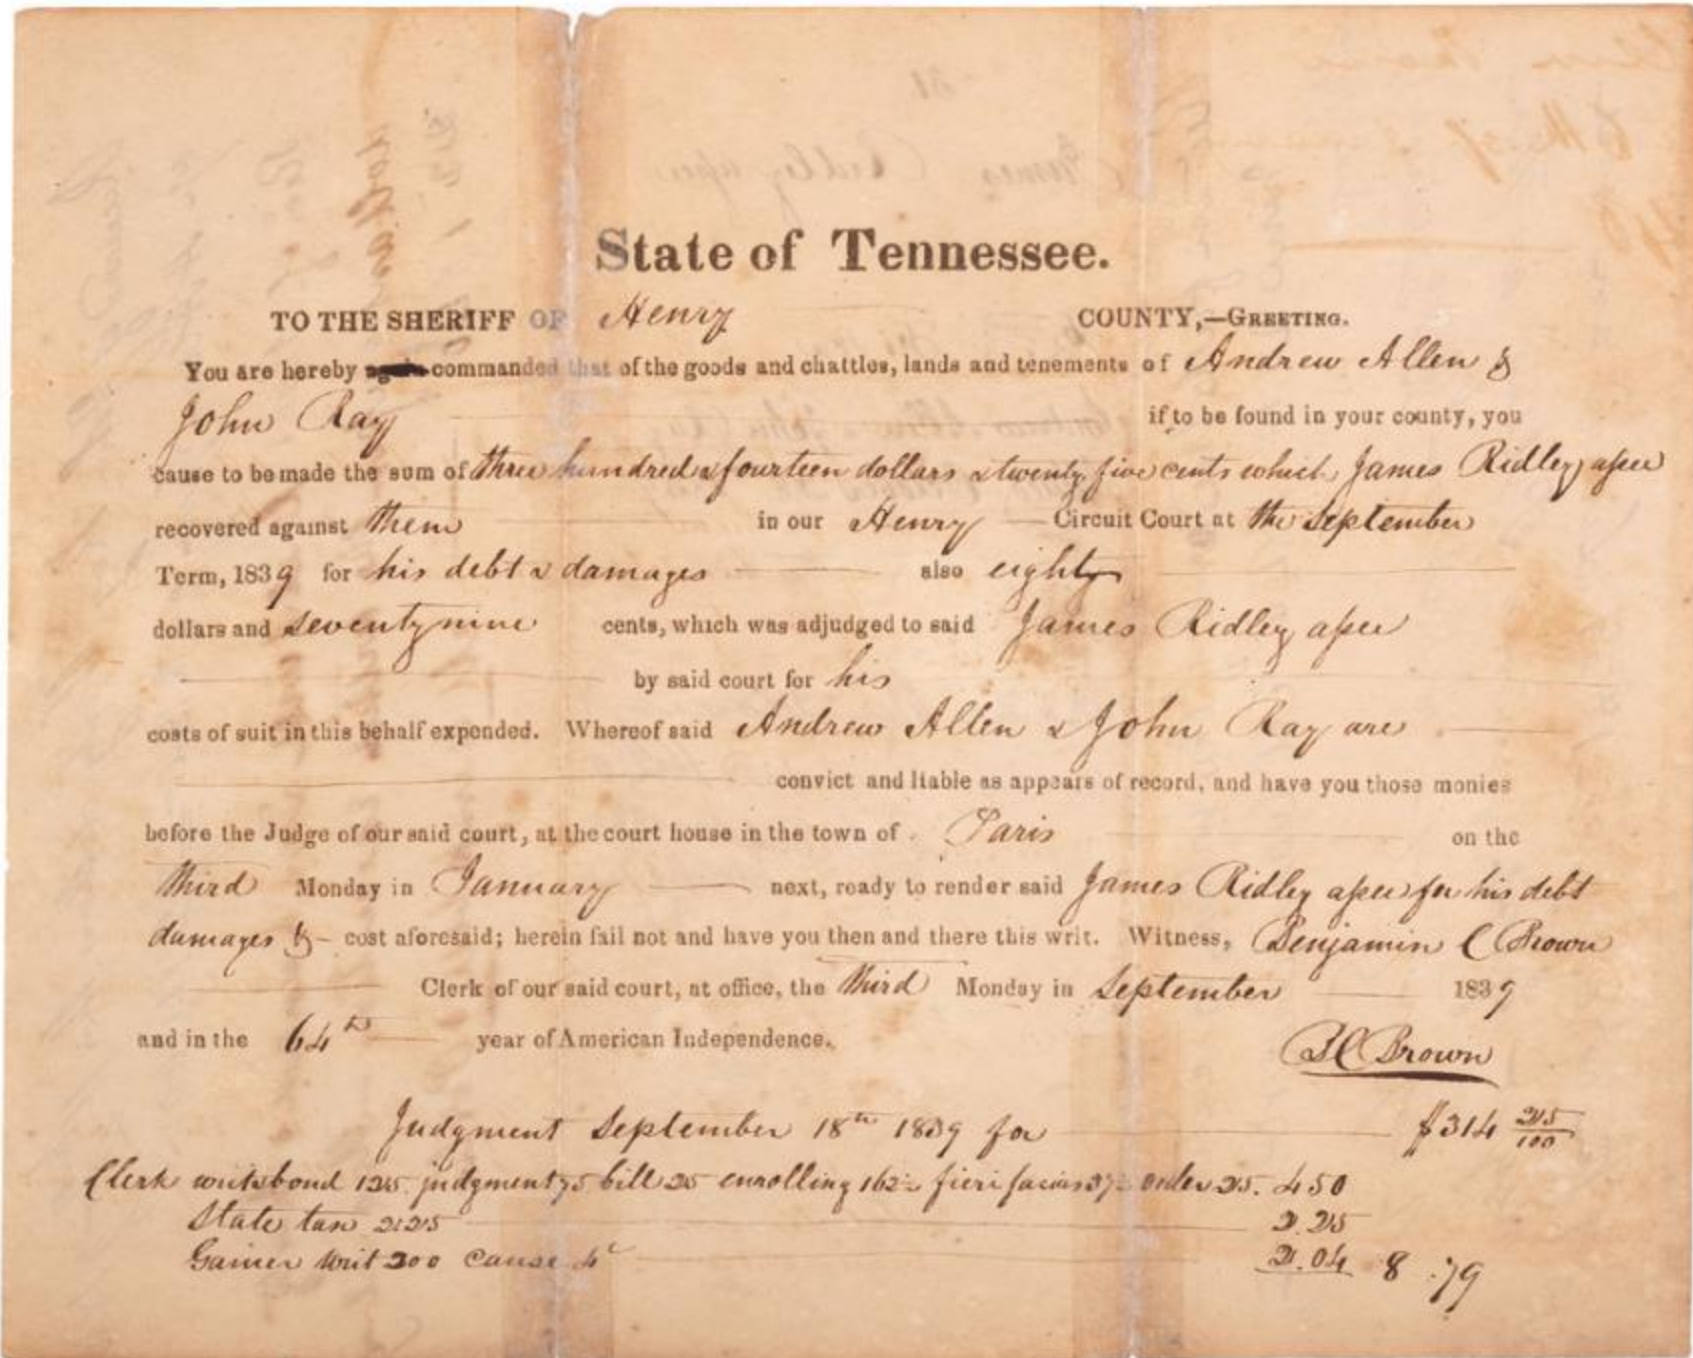 State of Tennessee.
TO THE SHERIFF OF Henry COUNTY,—GREETING.
You are hereby commanded that of the goods and chattles, lands and tenements of Andrew Allen &
John Ray if to be found in your county, you
cause to be made the sum of three hundred & fourteen dollars & twenty five cents which James Ridley assee
recovered against them in our Henry Circuit Court at the September
Term, 1839 for his debt & damages also eighty
dollars and seventy nine cents, which was adjudged to said James Ridley assee
by said court for his
costs of suit in this behalf expended. Whereof said Andrew Allen & John Ray are
convict and liable as appears of record, and have you those monies
before the Judge of our said court, at the court house in the town of Paris on the
third Monday in January next, ready to render said James Ridley assee for his debt
damages &- cost aforesaid; herein fail not and have you then and there this writ. Witness, Benjamin C Brown
Clerk of our said court, at office, the third Monday in September 1839
and in the 64th year of American Independence.
B C Brown
Judgment September 18th 1839 for $314 25/100
Clerk writ&bond 125 judgment 75 bill 25 enrolling 162½ fieri facias 37½ order 25. 450
State tax 2.25 2.25
Gainer writ 200 cause 4c 2.04 8.79